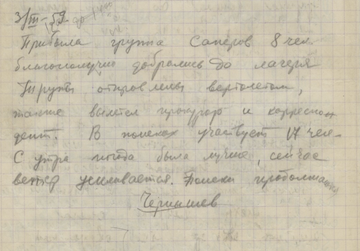 3/III-59
Прибыла группа Саперов 8 чел
благополучно добрались до лагеря
Трупы отправлены вертолетом,
также вылетел прокурор и корреспон
дент. В поисках участвует 17 чел.
С утра погода была лучше, сейчас
ветер усиливается. Поиски продолжаем
Чернышев